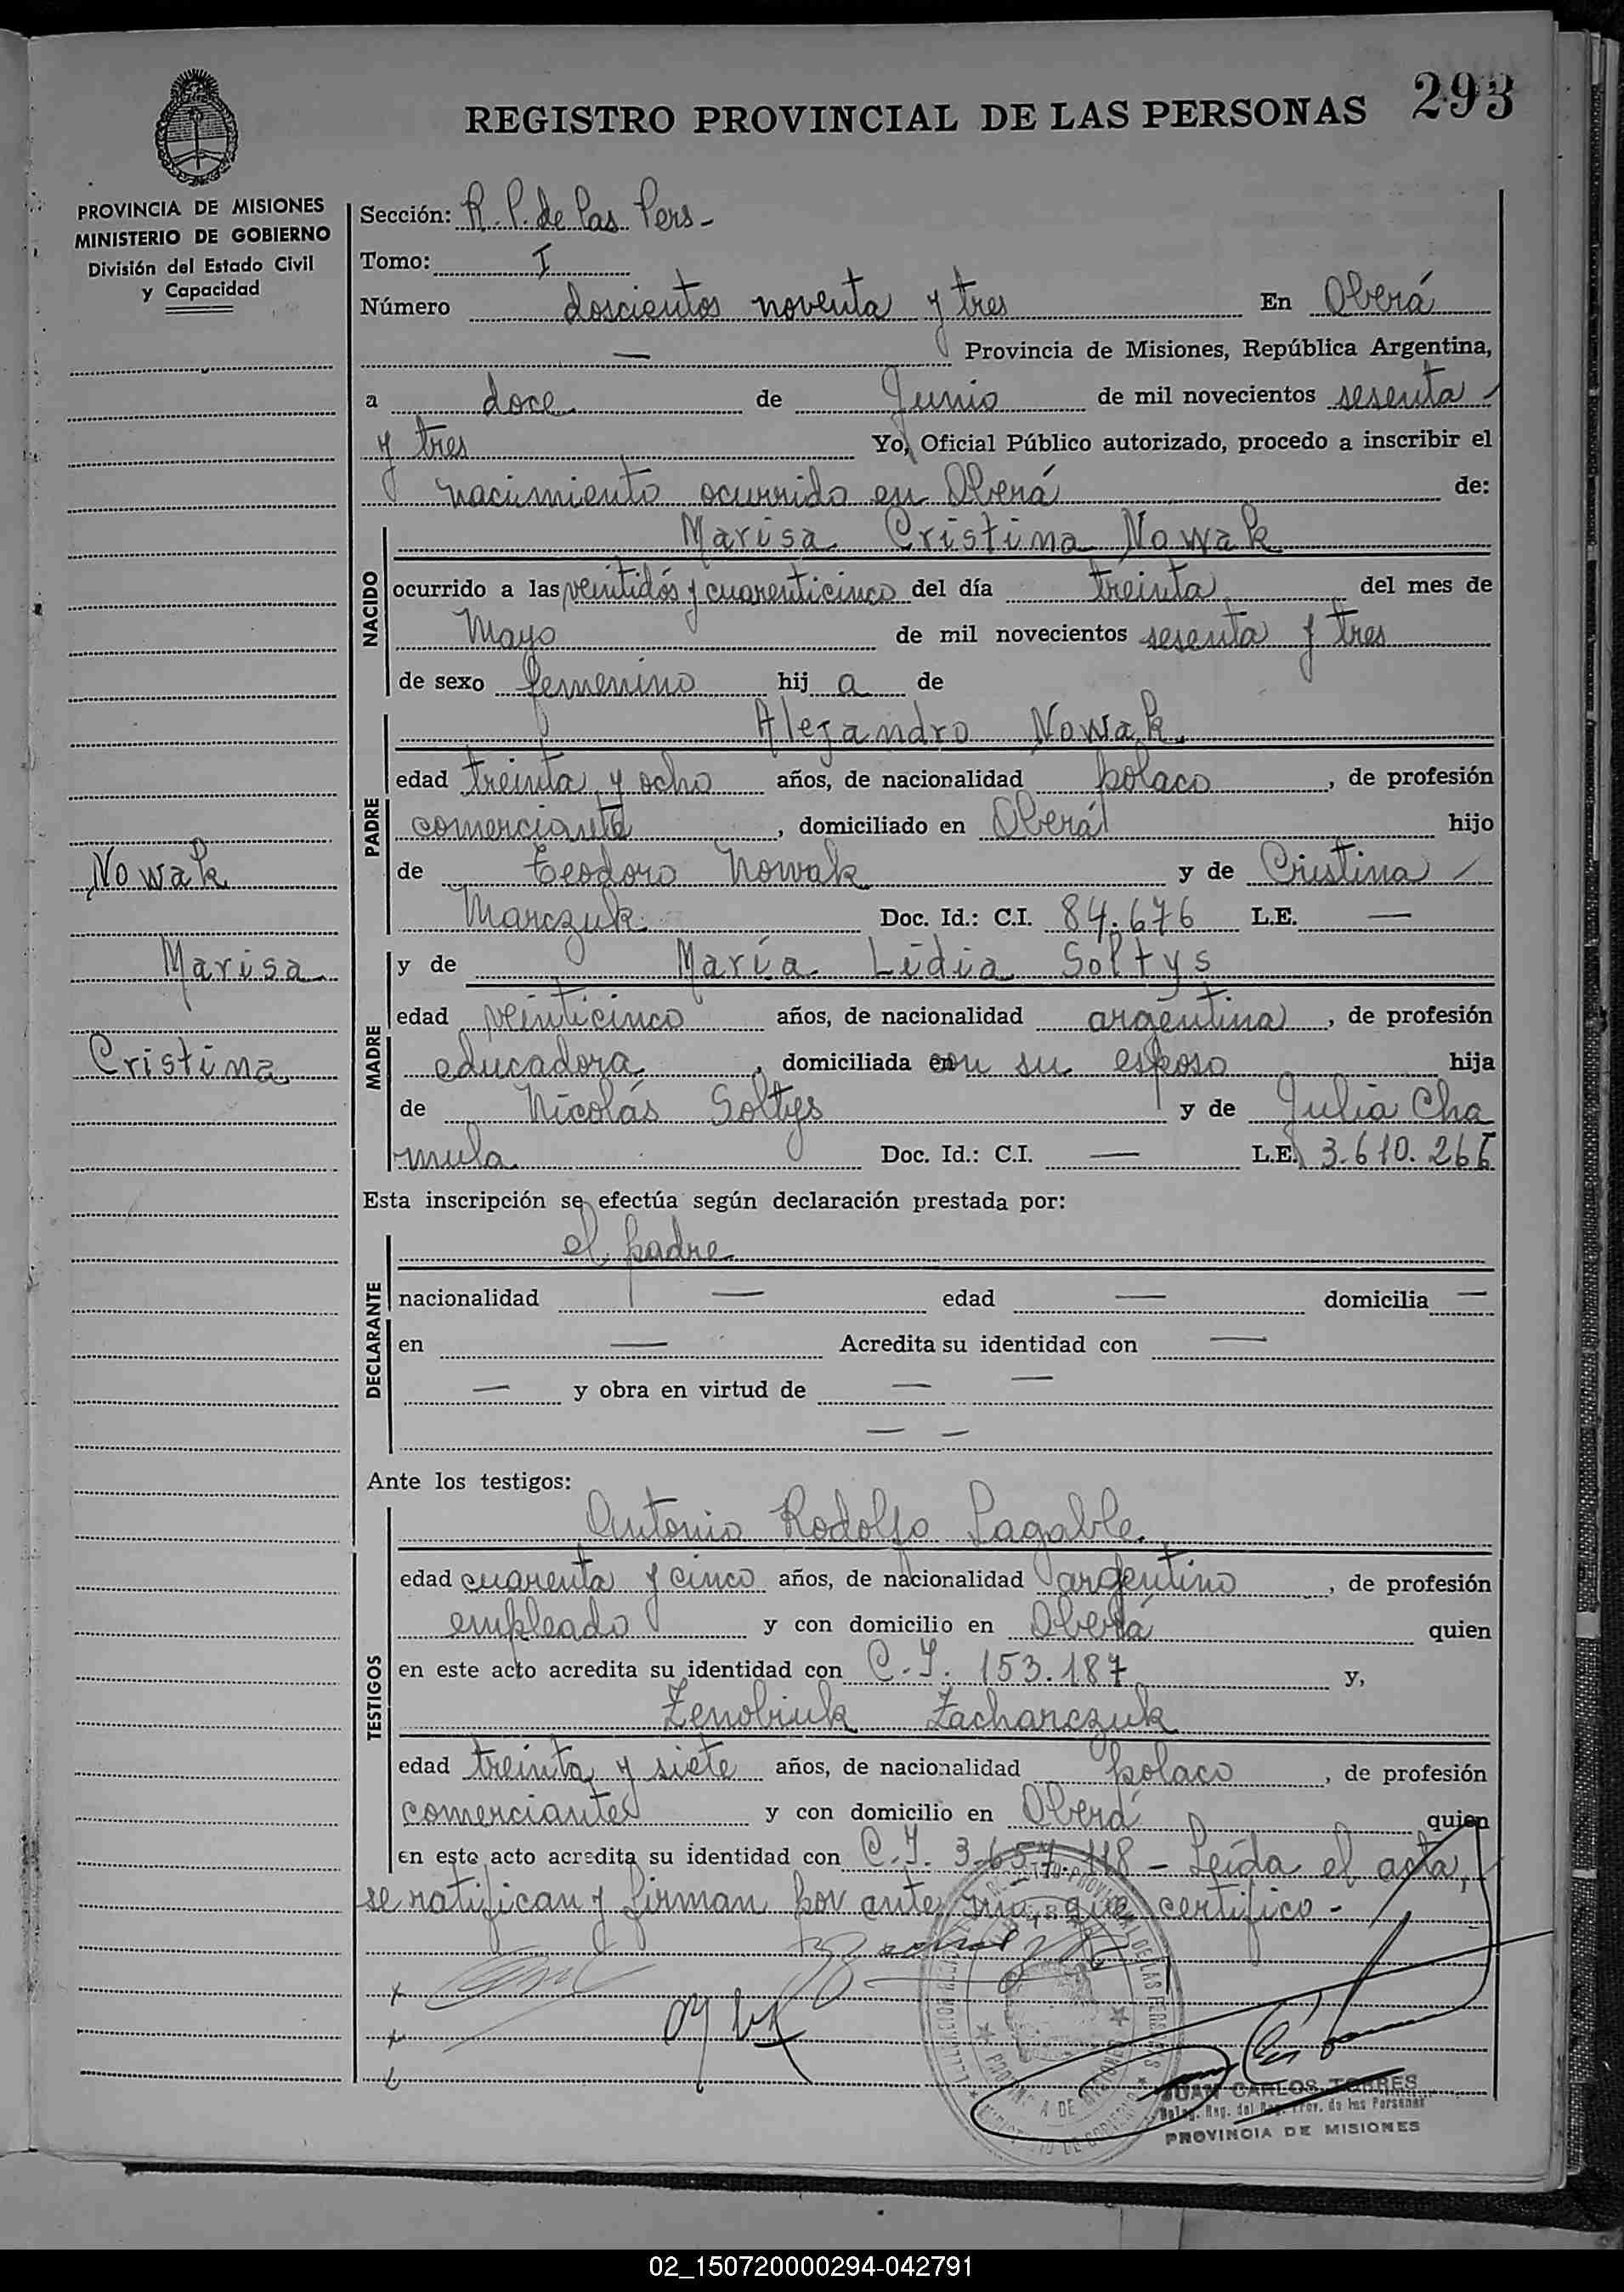 293
REGISTRO PROVINCIAL DE LAS PERSONAS
PROVINCIA DE MISIONES
MINISTERIO DE GOBIERNO
División del Estado Civil
y Capacidad
Sección: R. P. de las Pers-
Tomo: I
Número doscientos noventa y tres En Oberá
— Provincia de Misiones, República Argentina,
a doce de Junio de mil novecientos sesenta
y tres Yo, Oficial Público autorizado, procedo a inscribir el
nacimiento ocurrido en Oberá de:
NACIDO
Marisa Cristina Nowak
ocurrido a las veintidós y cuarenticinco del día treinta del mes de
Mayo de mil novecientos sesenta y tres
de sexo femenino hij a de
PADRE
Alejandro Nowak.
edad treinta y ocho años, de nacionalidad polaco, de profesión
comerciante, domiciliado en Oberá hijo
de Teodoro Nowak y de Cristina
Marczuk Doc. Id.: C.I. 84.676 L.E. —
MADRE
y de María Lidia Soltys
edad veinticinco años, de nacionalidad argentina, de profesión
educadora, domiciliada con su esposo hija
de Nicolás Soltys y de Julia Cha
mula Doc. Id.: C.I. — L.E. 3.610.266
Nowak
Marisa
Cristina
Esta inscripción se efectúa según declaración prestada por:
DECLARANTE
el padre
nacionalidad — edad — domicilia —
en — Acredita su identidad con —
— y obra en virtud de — —
— —
Ante los testigos:
TESTIGOS
Antonio Rodolfo Lagable.
edad cuarenta y cinco años, de nacionalidad argentino, de profesión
empleado y con domicilio en Oberá quien
en este acto acredita su identidad con C.I. 153.187 y,
Zenobiuk Zacharczuk
edad treinta y siete años, de nacionalidad polaco, de profesión
comerciante y con domicilio en Oberá quien
en este acto acredita su identidad con C.I. 3.657.118 - Leída el acta,
se ratifican y firman por ante mí, que certifico -
JUAN CARLOS TORRES
Deleg. Reg. del Reg. Prov. de las Personas
PROVINCIA DE MISIONES
02_150720000294-042791